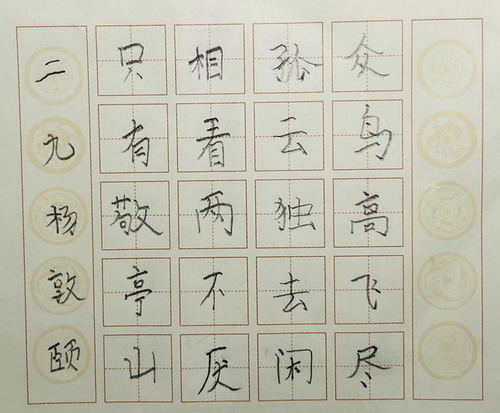 众鸟高飞尽
孤云独去闲
相看两不厌
只有敬亭山
二九杨敦颐